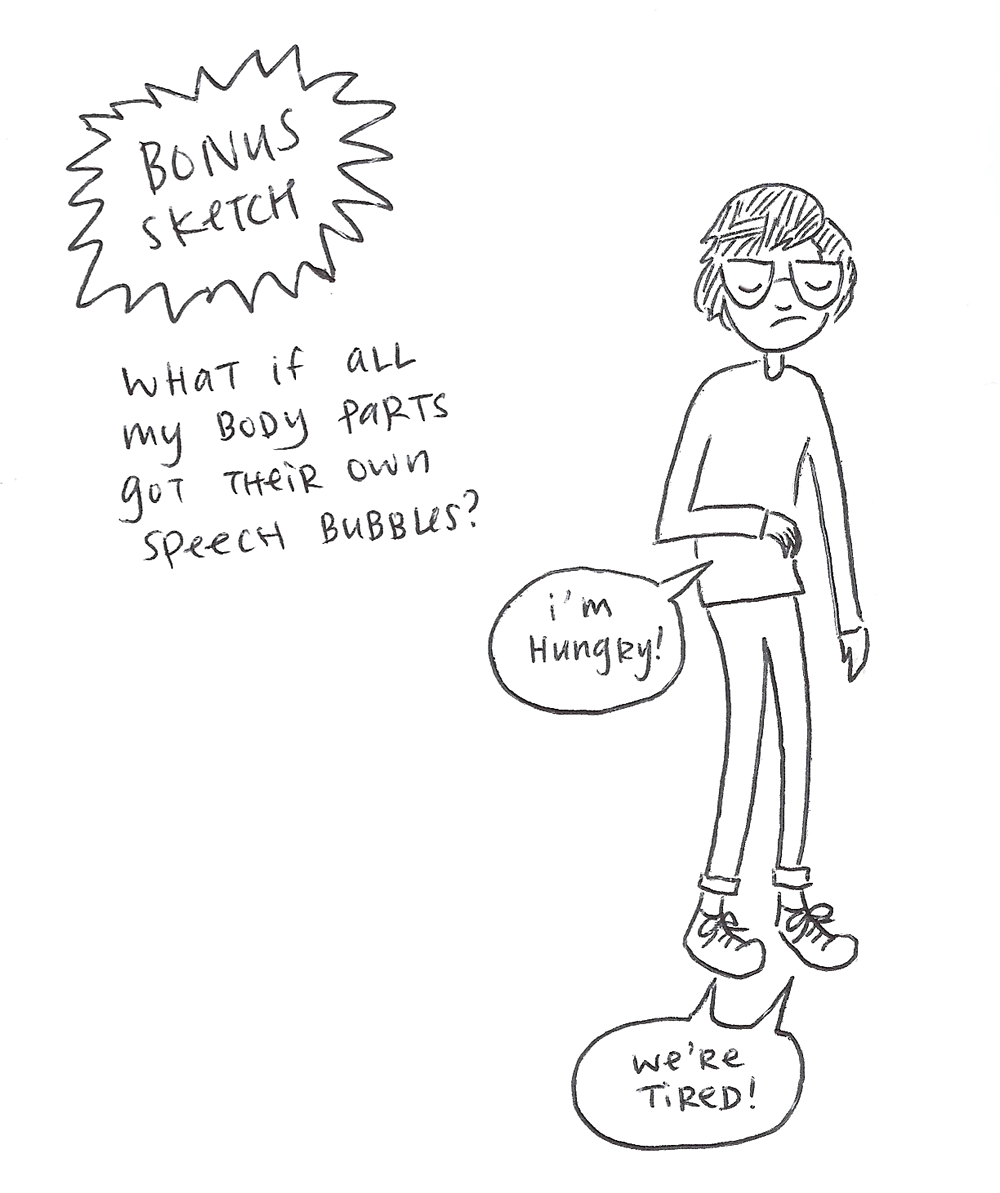 BONUS
SKeTCH
WHaT if aLL
my BODy PaRTS
goT THeiR own
SPeecH BuBBLes?
i'm
Hungry!
we're
TiReD!